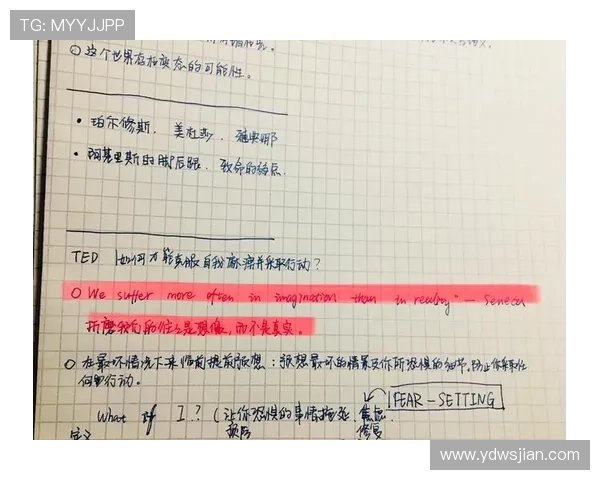 TG: MYYJJPP
○ 这个世界存在变态的可能性。
• 珀尔修斯. 美杜莎. 雅典娜
• 阿基里斯的脚后跟. 致命的弱点.
TED 如何才能克服自我麻痹并采取行动?
○ We suffer more often in imagination than in reality" — Seneca
折磨我们的往往是想像,而不是真实.
○ 在最坏情况下来临前提前预想:预想最坏的情景及你所恐惧的细节,防止你采取任
何行动.
FEAR-SETTING
What if I ? (让你恐惧的事情 焦虑
定义 预防 修复
www.ydwsjian.com